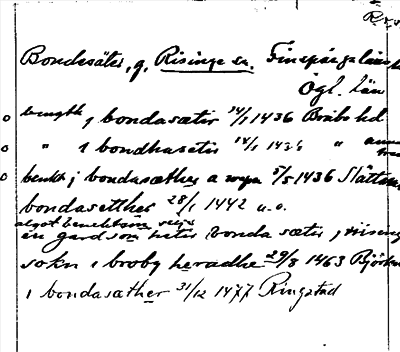 Bondesäter, g. Risinge sn. Finspångs län
Ögl. län
bengtk j bondasætir 14/1 1436 Bråbo hd
" i bondhasætir 14/1 1436 "
benkt j bondasæther a 3/5 1436 Slättm
bondasetther 28/1 1442 u.o.
en gard som heter bonda sæter j riseng
sokn i broby heradhe 29/8 1463 Björk
i bondasæther 31/12 1477 Ringstad